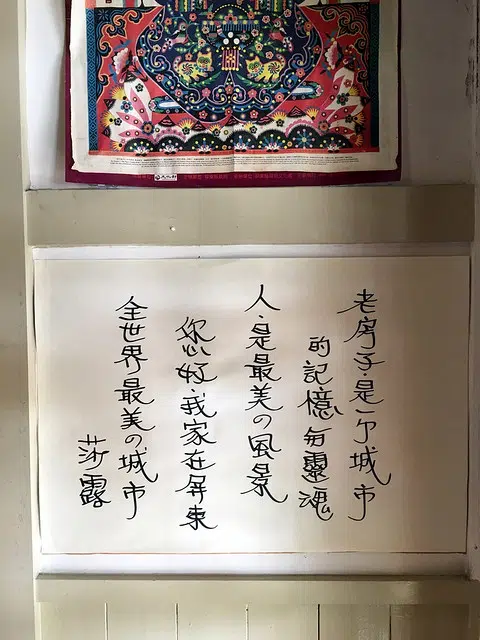 老房子·是一个城市
的記憶与靈魂
人·是最美の風景
您好·我家在屏東
全世界最美の城市
莎露